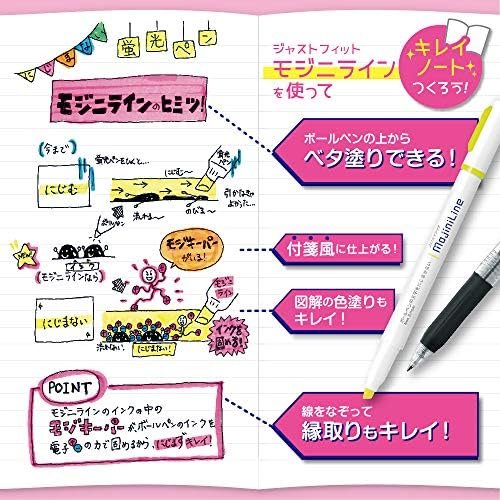 にじまない
蛍光ペン
モジニラインのヒミツ!
(今まで)
にじむ
蛍光ペンをひくと…
にじむ〜
蛍光ペン
流れる〜
のびる〜
引かなきゃ
よかった…
ボールペン
NEW!
インク
(モジニラインなら)
モジキーパー
がいる!
モジニ
ライン
にじまない
流れない
にじまない!
インクを
固める!
POINT
モジニラインのインクの中の
モジキーパーがボールペンのインクを
電子の力で固めるから、にじまずキレイ!
ジャストフィット
モジニライン
を使って
キレイ
ノート
つくろう!
ボールペンの上から
ベタ塗りできる!
付箋風に仕上がる!
図解の色塗りも
キレイ!
線をなぞって
縁取りもキレイ!
mojiniLine